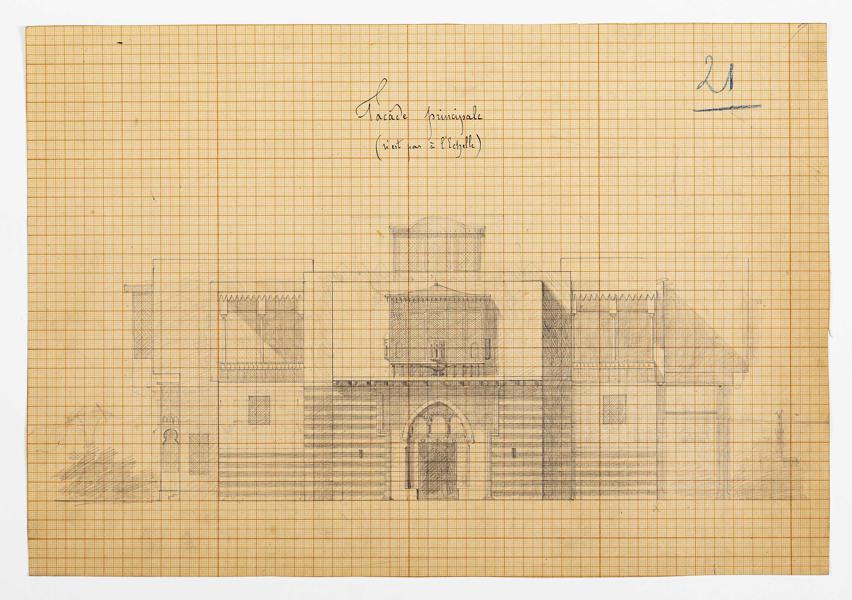 21
Façade principale
(n'est pas à l'Echelle)